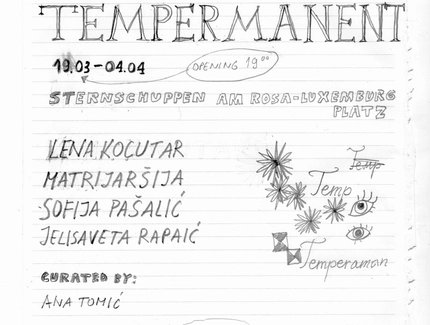 TEMPERMANENT
19.03 - 04.04
OPENING 19⁰⁰
STERNSCHUPPEN AM ROSA-LUXEMBURG
PLATZ
LENA KOCUTAR
MATRIJARŠIJA
SOFIJA PAŠALIĆ
JELISAVETA RAPAIĆ
Temp
Temp
Temperaman
CURATED BY:
ANA TOMIĆ